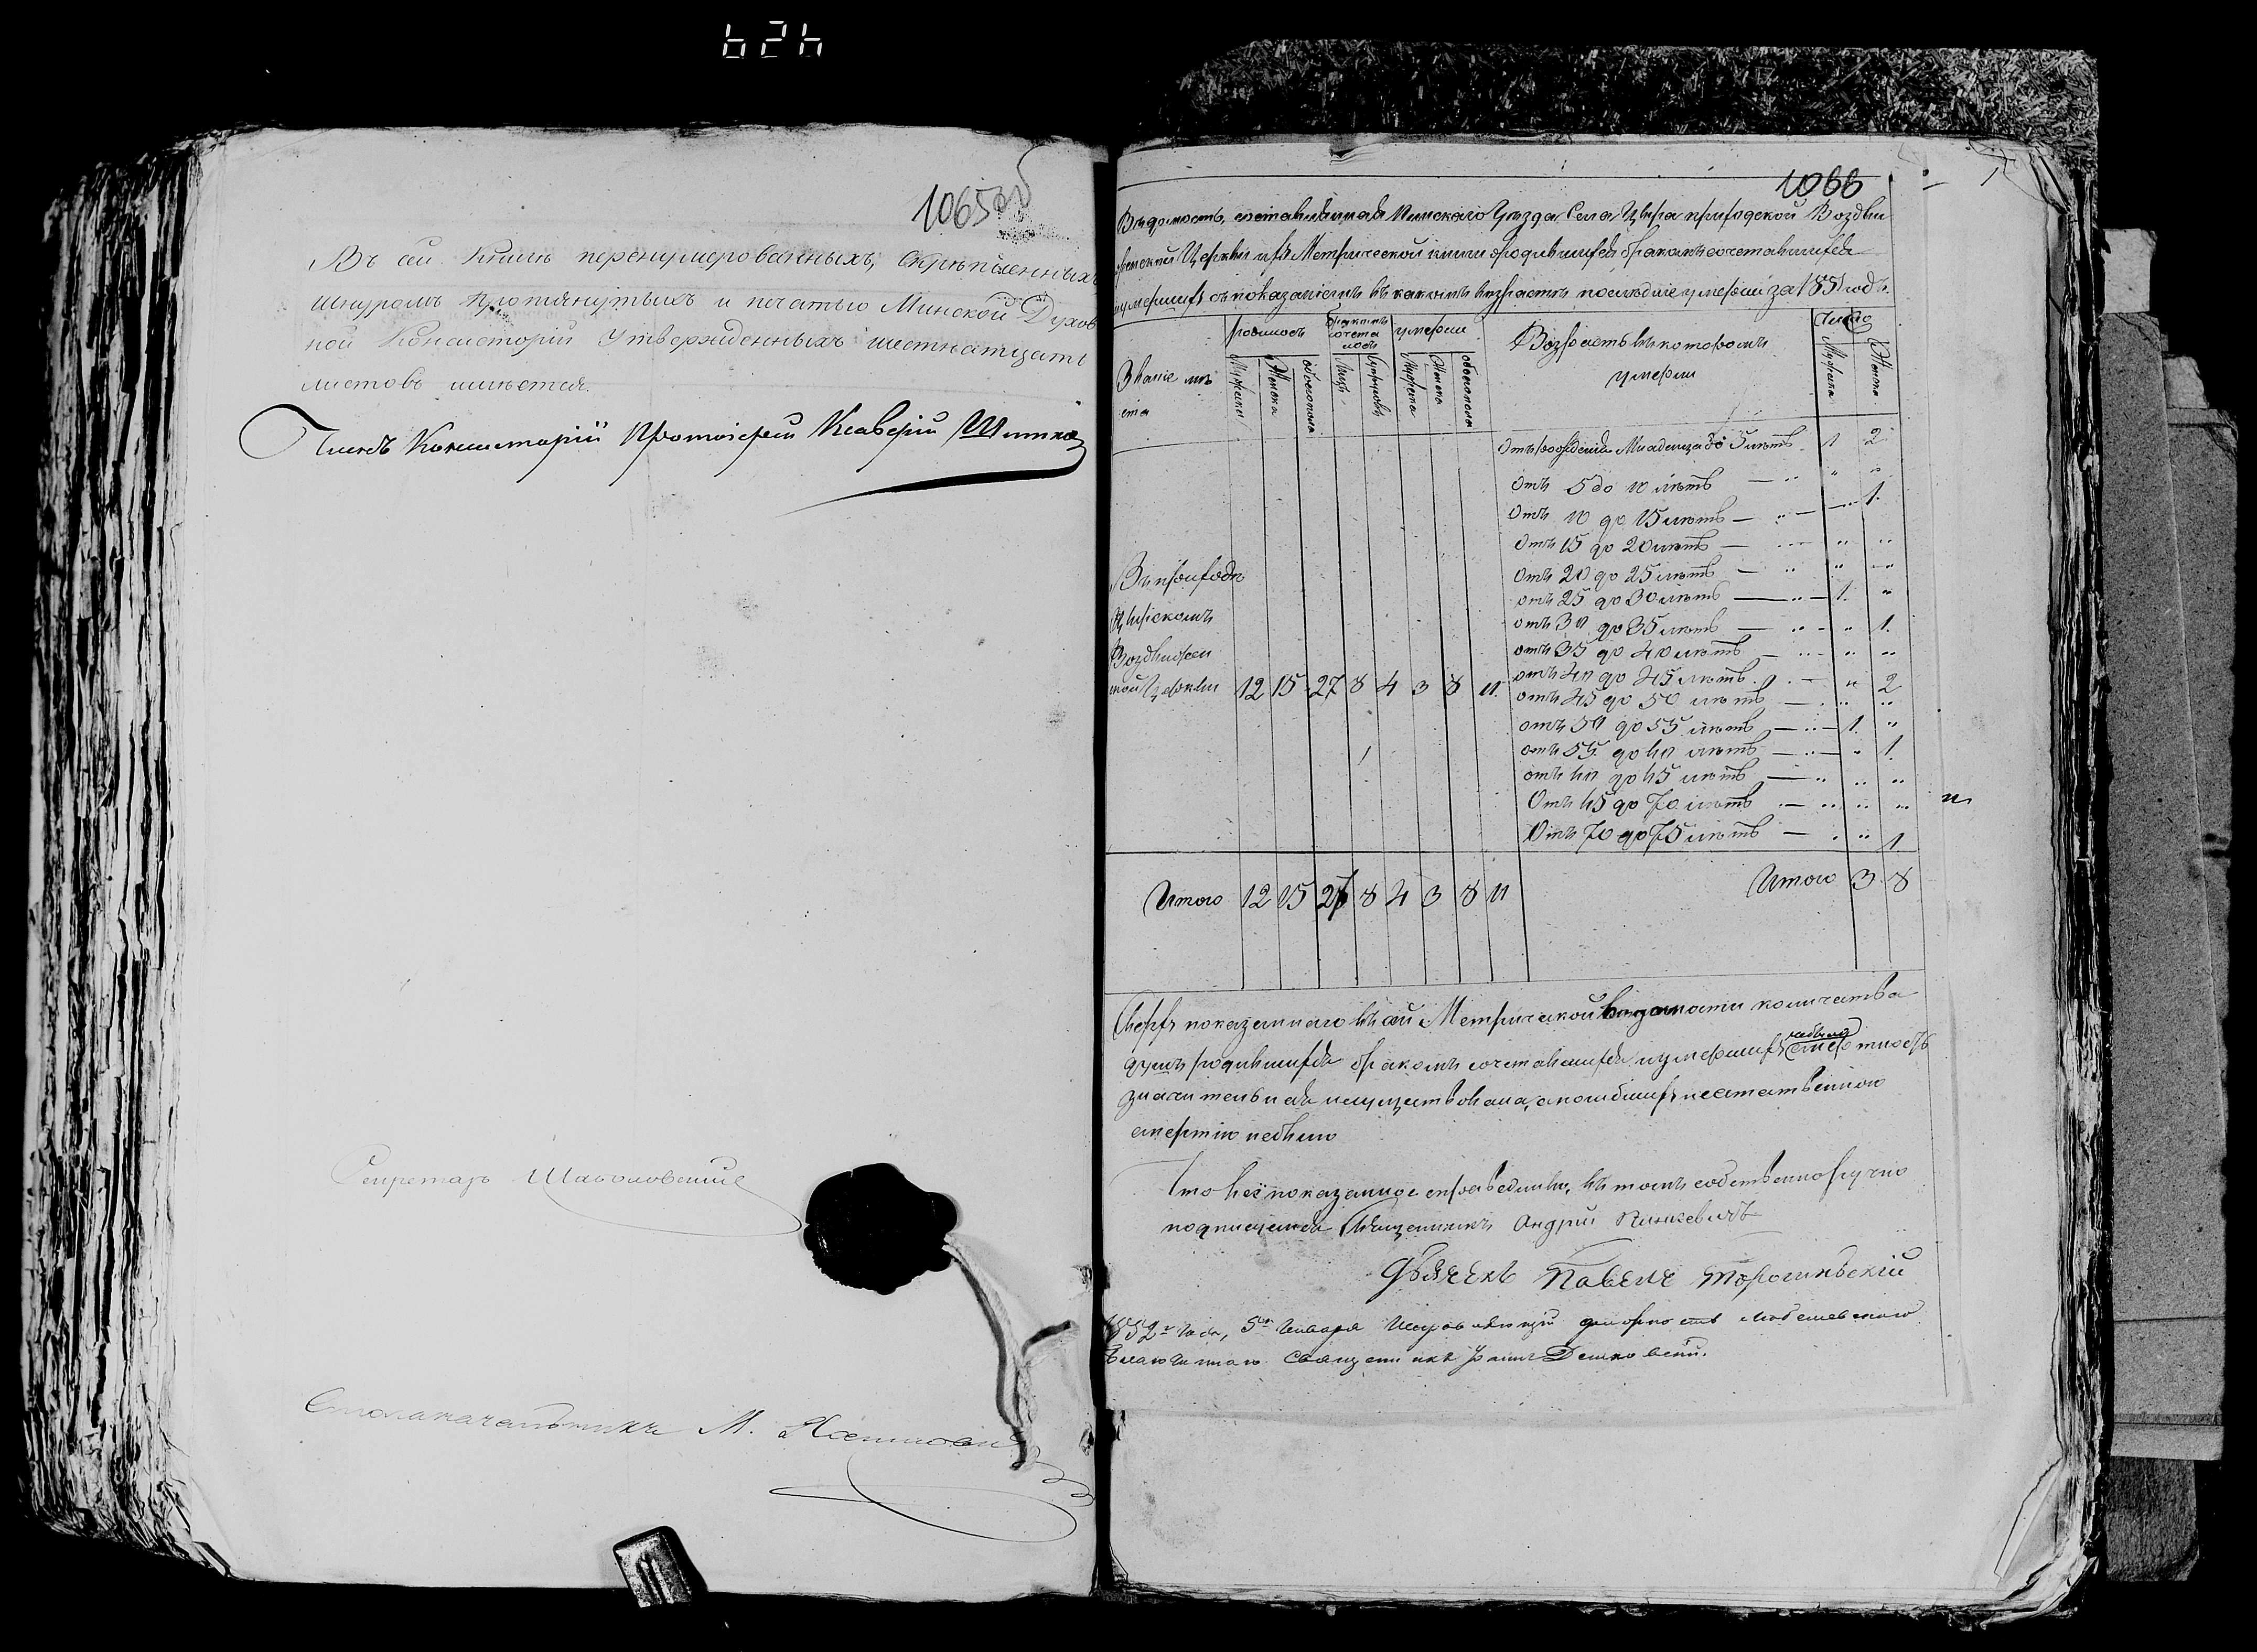 624
1065 об
Въ сей книгѣ перенумерованныхъ, скрѣпленныхъ
шнуромъ протянутыхъ и печатью Минской Духов
ной Консисторіи утвержденныхъ шестнатцать
листовъ имѣется.
Членъ Консисторіи Протоіерей Ксаверій
Секретарь
Столоначальникъ М.
1066
Вѣдомость, составленная Пинскаго Уѣзда Села Цира приходской Воздви
женской Церкви изъ Метрической книги о родившихся бракомъ сочетавшихся
и умершихъ съ показаніемъ въ какомъ возрастѣ послѣдніе умерли за 1851 годъ.
Званіе мѣ
ста
родилось
бракомъ
сочета
лось
умерли
Возрастъ въ которомъ
умерли
Число
Мужска
Женска
обоего пола
Лицъ
Мужска
Женска
обоего пола
Мужска
Женска
Отъ рожденія Младенца до 5 лѣтъ 1 2
Отъ 5 до 10 лѣтъ — " " "
Отъ 10 до 15 лѣтъ — " — " 1.
Отъ 15 до 20 лѣтъ — " " "
Отъ 20 до 25 лѣтъ — " " "
отъ 25 до 30 лѣтъ — " — 1. "
отъ 30 до 35 лѣтъ — " " 1.
отъ 35 до 40 лѣтъ — " " "
отъ 40 до 45 лѣтъ. — " 2
отъ 45 до 50 лѣтъ — " " "
отъ 50 до 55 лѣтъ — " — 1. "
отъ 55 до 60 лѣтъ — " — " 1.
отъ 60 до 65 лѣтъ — " " "
Отъ 65 до 70 лѣтъ — " " "
Отъ 70 до 75 лѣтъ — " " 1
Въ приходѣ
Цирскомъ
Воздвижен
ской Церкви 12 15 27 8 4 3 8 11.
Итого 12 15 27 8 4 3 8 11
Итого 3 8
Сверхъ показаннаго въ сей Метрической вѣдомости количества
душъ родившихся бракомъ сочетавшихся и умершихъ небыло смертность
значительная несуществовала, а погибшихъ неестественною
смертію небыло
Что всё показанное справедливо, въ томъ собственноручно
подписуемся Священникъ Андрей
Дьячекъ Павелъ
1852 г. года, 5 го Января
Благочиннаго Священникъ